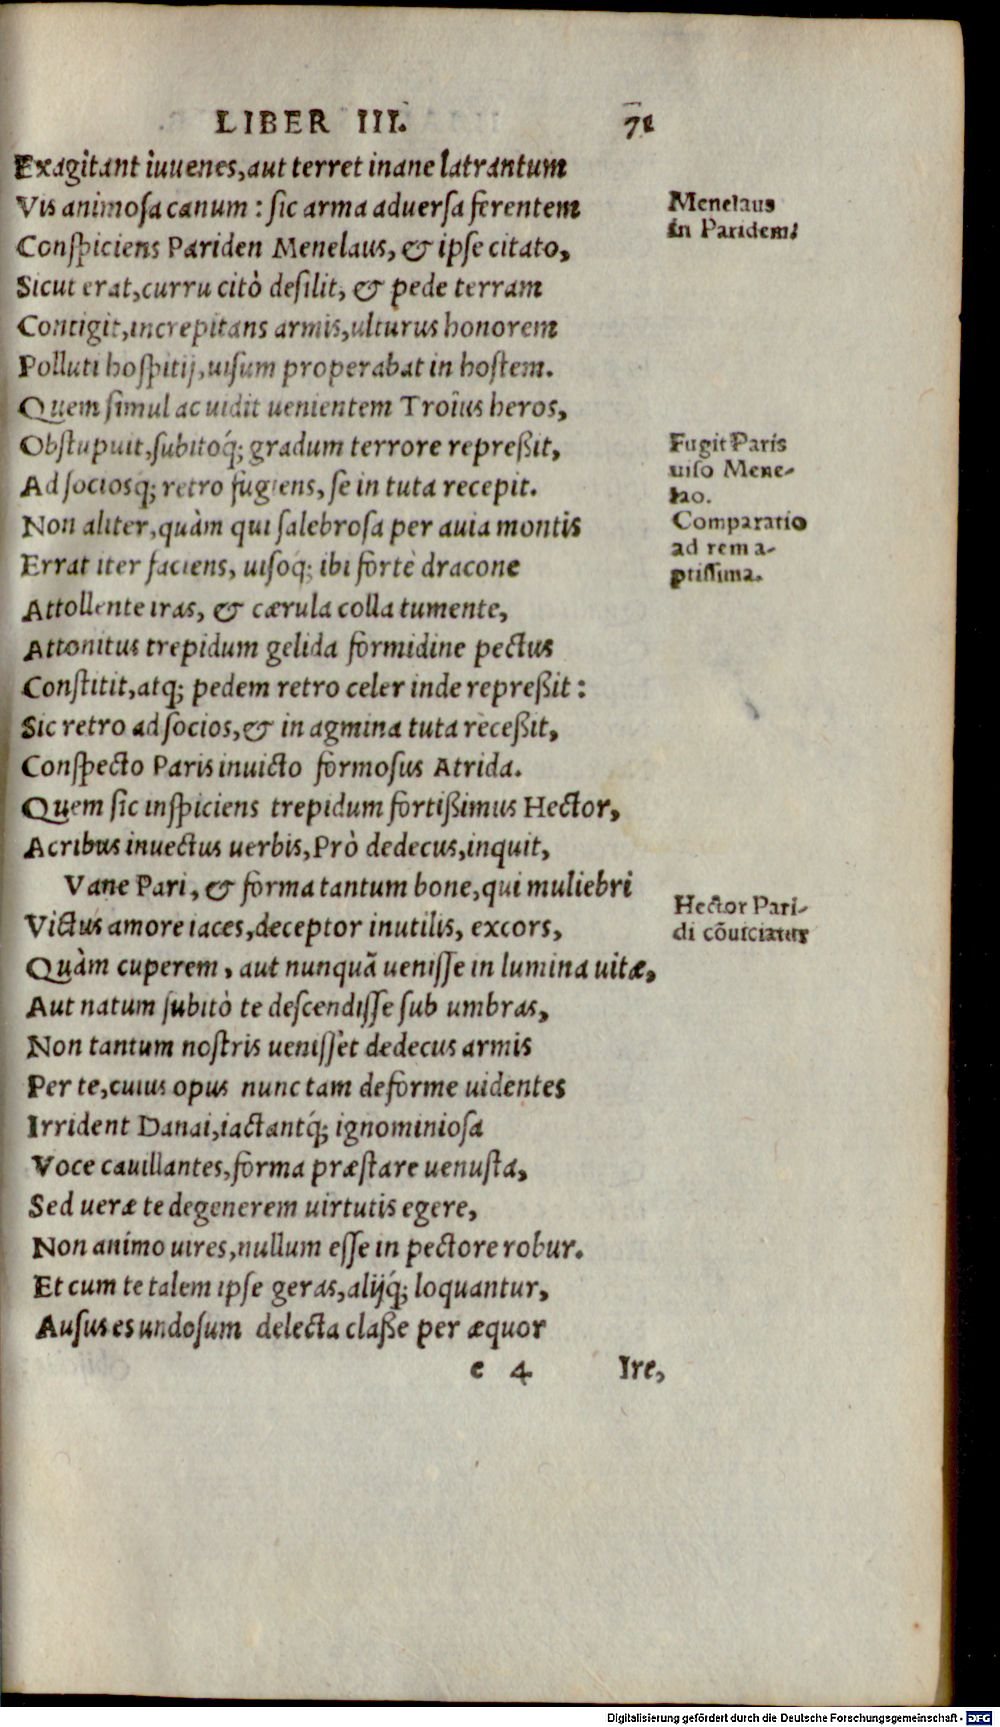 LIBER III. 71
Exagitant iuuenes, aut terret inane latrantum
Vis animosa canum : sic arma aduersa ferentem
Menelaus
in Paridem.
Conspiciens Pariden Menelaus, & ipse citato,
Sicut erat, curru citò desilit, & pede terram
Contigit, increpitans armis, ulturus honorem
Polluti hospitij, uisum properabat in hostem.
Quem simul ac uidit uenientem Troius heros,
Obstupuit, subitoq́; gradum terrore repreßit,
Fugit Paris
uiso Mene-
lao.
Ad sociosq; retro fugiens, se in tuta recepit.
Non aliter, quàm qui salebrosa per auia montis
Comparatio
ad rem a-
ptissima.
Errat iter faciens, uisoq́; ibi fortè dracone
Attollente iras, & cærula colla tumente,
Attonitus trepidum gelida formidine pectus
Constitit, atq; pedem retro celer inde repreßit :
Sic retro ad socios, & in agmina tuta receßit,
Conspecto Paris inuicto formosus Atrida.
Quem sic inspiciens trepidum fortißimus Hector,
Acribus inuectus uerbis, Prò dedecus, inquit,
Vane Pari, & forma tantum bone, qui muliebri
Hector Pari-
di cõuiciatur
Victus amore iaces, deceptor inutilis, excors,
Quàm cuperem, aut nunquã uenisse in lumina uitæ,
Aut natum subitò te descendisse sub umbras,
Non tantum nostris uenisset dedecus armis
Per te, cuius opus nunc tam deforme uidentes
Irrident Danai, iactantq́; ignominiosa
Voce cauillantes, forma præstare uenusta,
Sed ueræ te degenerem uirtutis egere,
Non animo uires, nullum esse in pectore robur.
Et cum te talem ipse geras, alijq́; loquantur,
Ausus es undosum delecta claße per æquor
e 4 Ire,
Digitalisierung gefördert durch die Deutsche Forschungsgemeinschaft - DFG